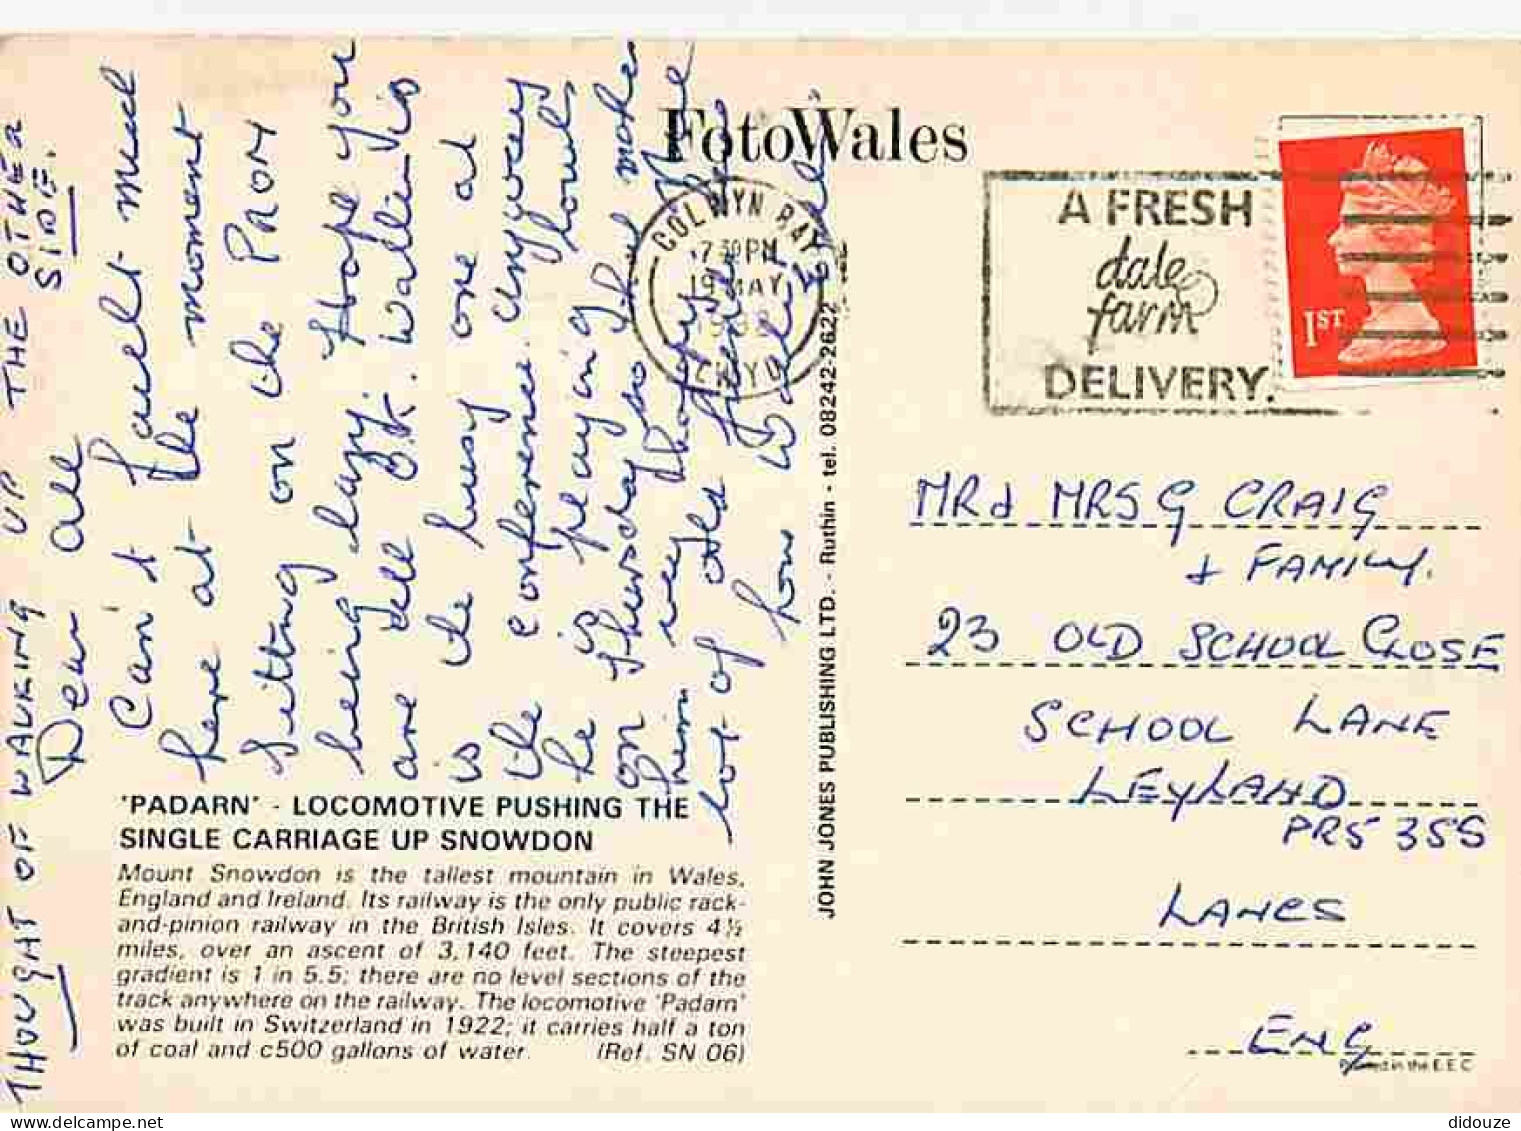 THOUGHT OF WALKING UP THE OTHER
SIDE.
Dear All
Can't fault much
here at the moment
Sitting on the PROM
being lazy. Hope you
are all O.K. Walter is
is the busy one at
the conference. Anyway
he is playing bowls
on Thursday so that makes
him very happy. The
lot of old friends
how Walter
FotoWales
COLWYN BAY
7 30 PM
19 MAY
CLWYD
A FRESH
dale
farm
DELIVERY.
1ST
MR & MRS G CRAIG
+ FAMILY.
23 OLD SCHOOL CLOSE
SCHOOL LANE
LEYLAND
PR5 3SS
LANCS
ENG
Printed in the E.E.C
JOHN JONES PUBLISHING LTD. - Ruthin - tel. 08242-2622
'PADARN' - LOCOMOTIVE PUSHING THE
SINGLE CARRIAGE UP SNOWDON
Mount Snowdon is the tallest mountain in Wales,
England and Ireland. Its railway is the only public rack-
and-pinion railway in the British Isles. It covers 4½
miles, over an ascent of 3,140 feet. The steepest
gradient is 1 in 5.5; there are no level sections of the
track anywhere on the railway. The locomotive 'Padarn'
was built in Switzerland in 1922; it carries half a ton
of coal and c500 gallons of water. (Ref. SN 06)
didouze